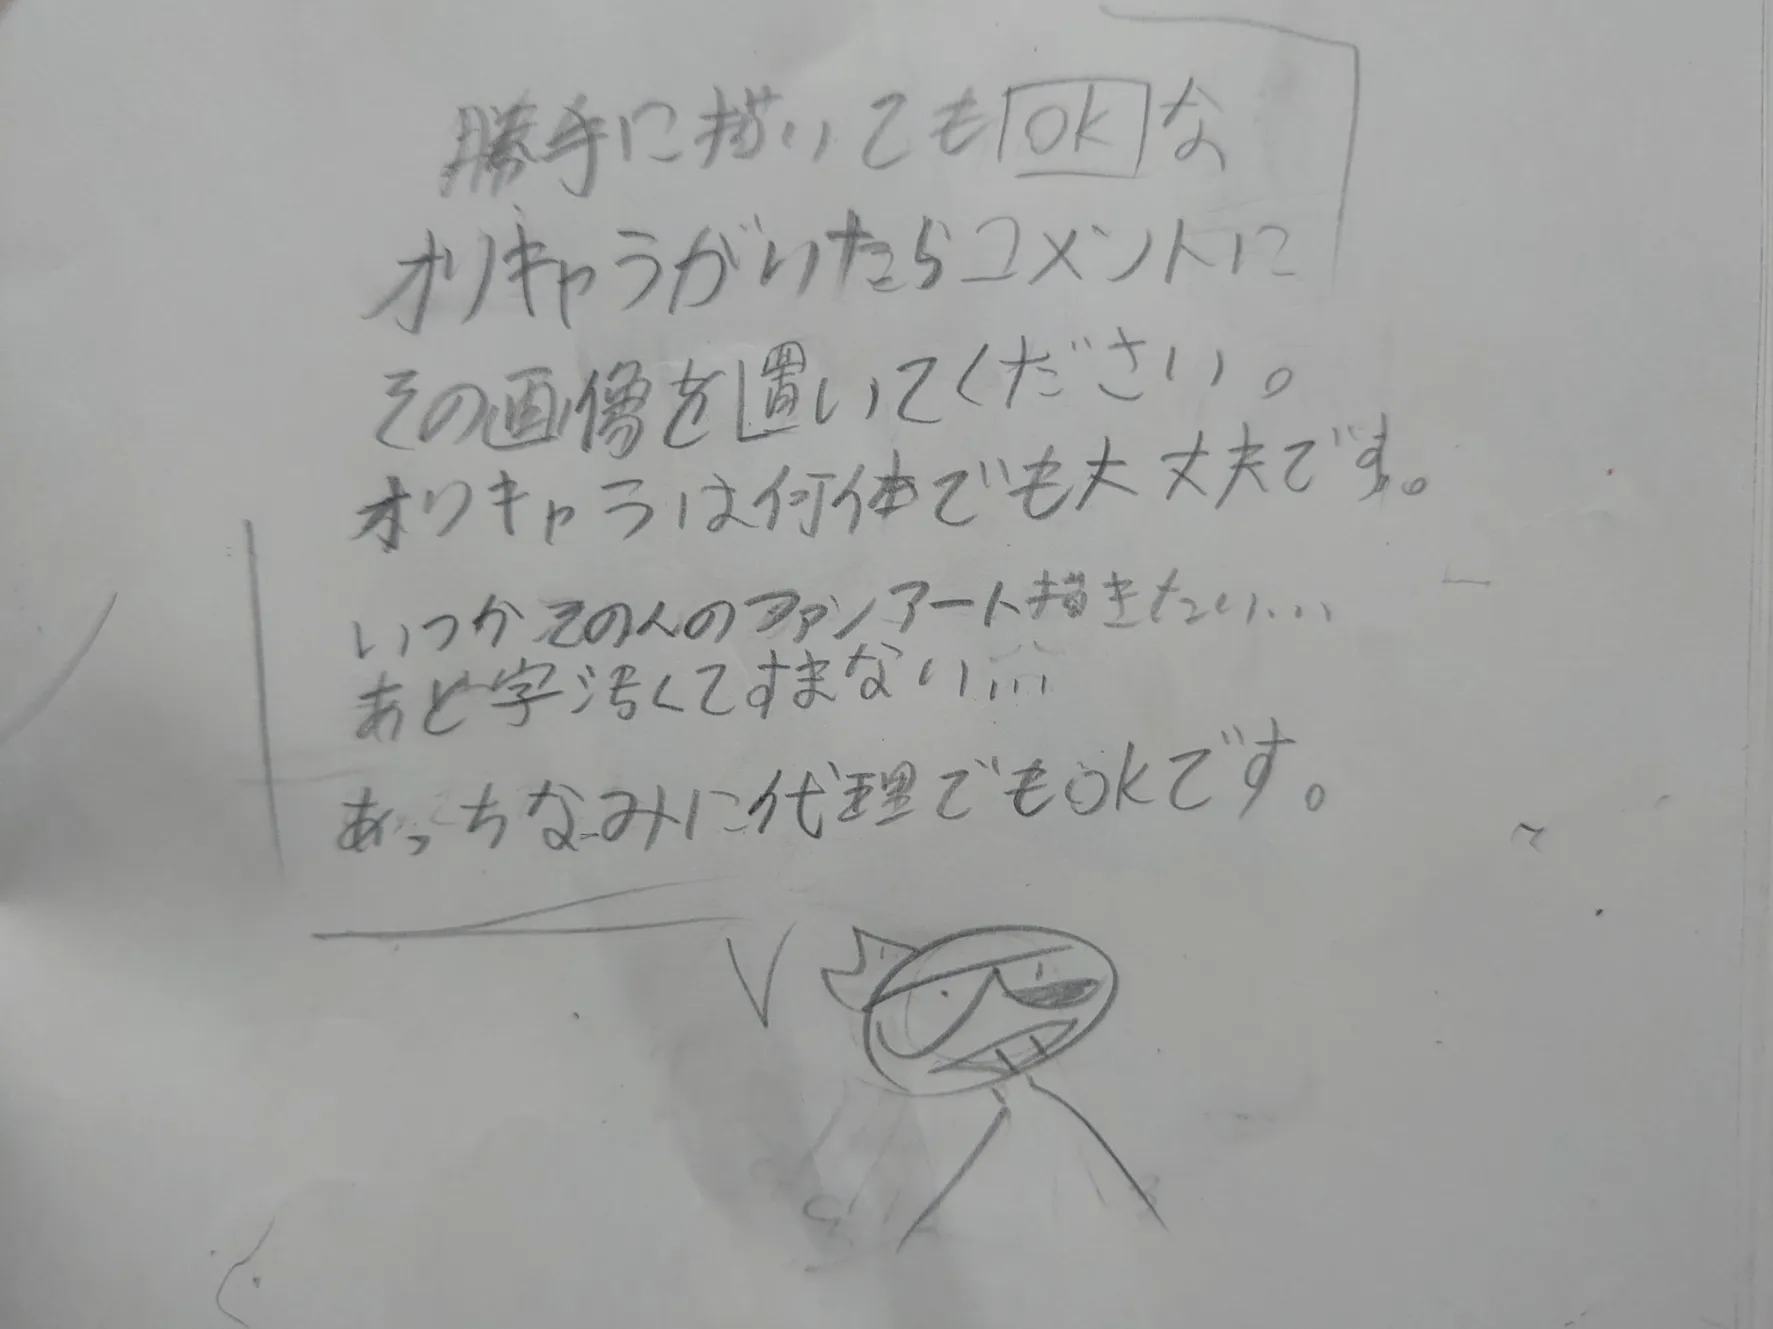 勝手に描いてもokな
オリキャラがいたらコメントに
その画像を置いてください。
オリキャラは何体でも大丈夫です。
いつかその人のファンアート描きたい...
あと字汚くてすまない...
あっちなみに代理でもokです。